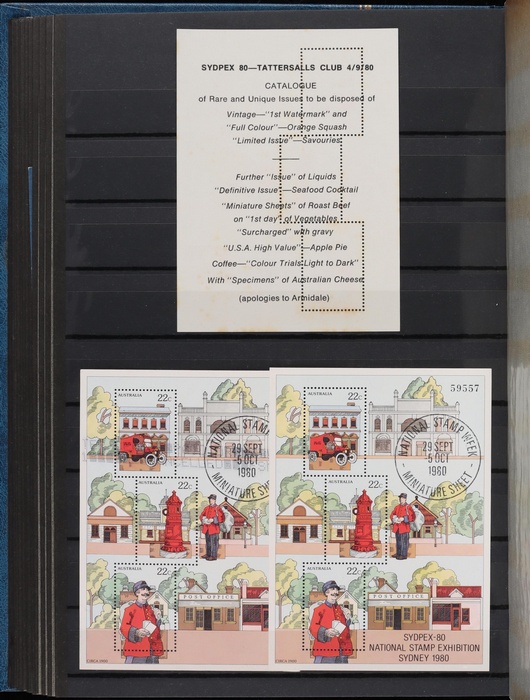 SYDPEX 80—TATTERSALLS CLUB 4/9/80
CATALOGUE
of Rare and Unique Issues to be disposed of
Vintage—"1st Watermark" and
"Full Colour"—Orange Squash
"Limited Issue"—Savouries
Further "Issue" of Liquids
"Definitive Issue"—Seafood Cocktail
"Miniature Sheets" of Roast Beef
on "1st day" of Vegetables
"Surcharged" with gravy
"U.S.A. High Value"—Apple Pie
Coffee—"Colour Trials Light to Dark"
With "Specimens" of Australian Cheese
(apologies to Armidale)
AUSTRALIA
22c
NATIONAL STAMP
29 SEPT
5 OCT
1980
MINIATURE SHE
22c
AUSTRALIA
22c
POST OFFICE
CIRCA 1900
59557
AUSTRALIA
22c
NATIONAL STAMP WEEK
29 SEPT
5 OCT
1980
MINIATURE SHEET
22c
AUSTRALIA
22c
POST OFFICE
SYDPEX-80
NATIONAL STAMP EXHIBITION
SYDNEY 1980
CIRCA 1900